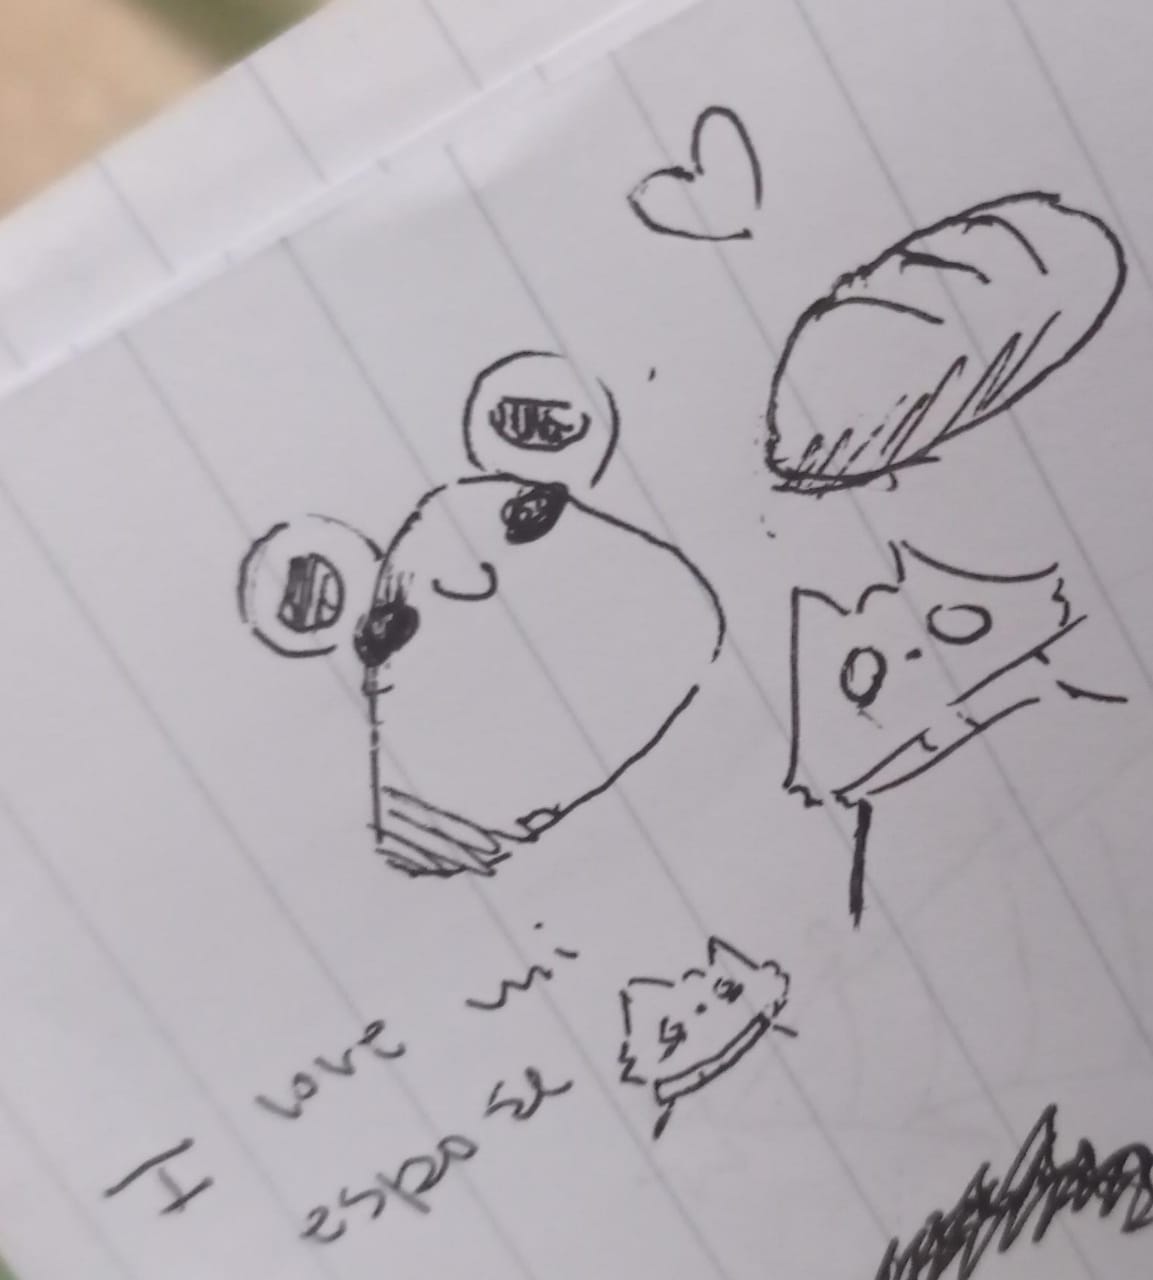 I love mi
espose